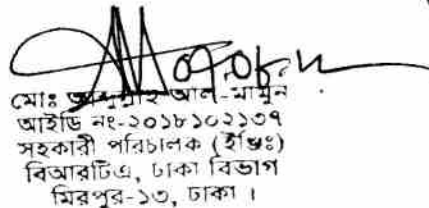 ০৭.০৮.২১
মোঃ আব্দুল্লাহ আল-মামুন
আইডি নং-২০১৮১০২১৩৭
সহকারী পরিচালক (ইঞ্জিঃ)
বিআরটিএ, ঢাকা বিভাগ
মিরপুর-১৩, ঢাকা ।